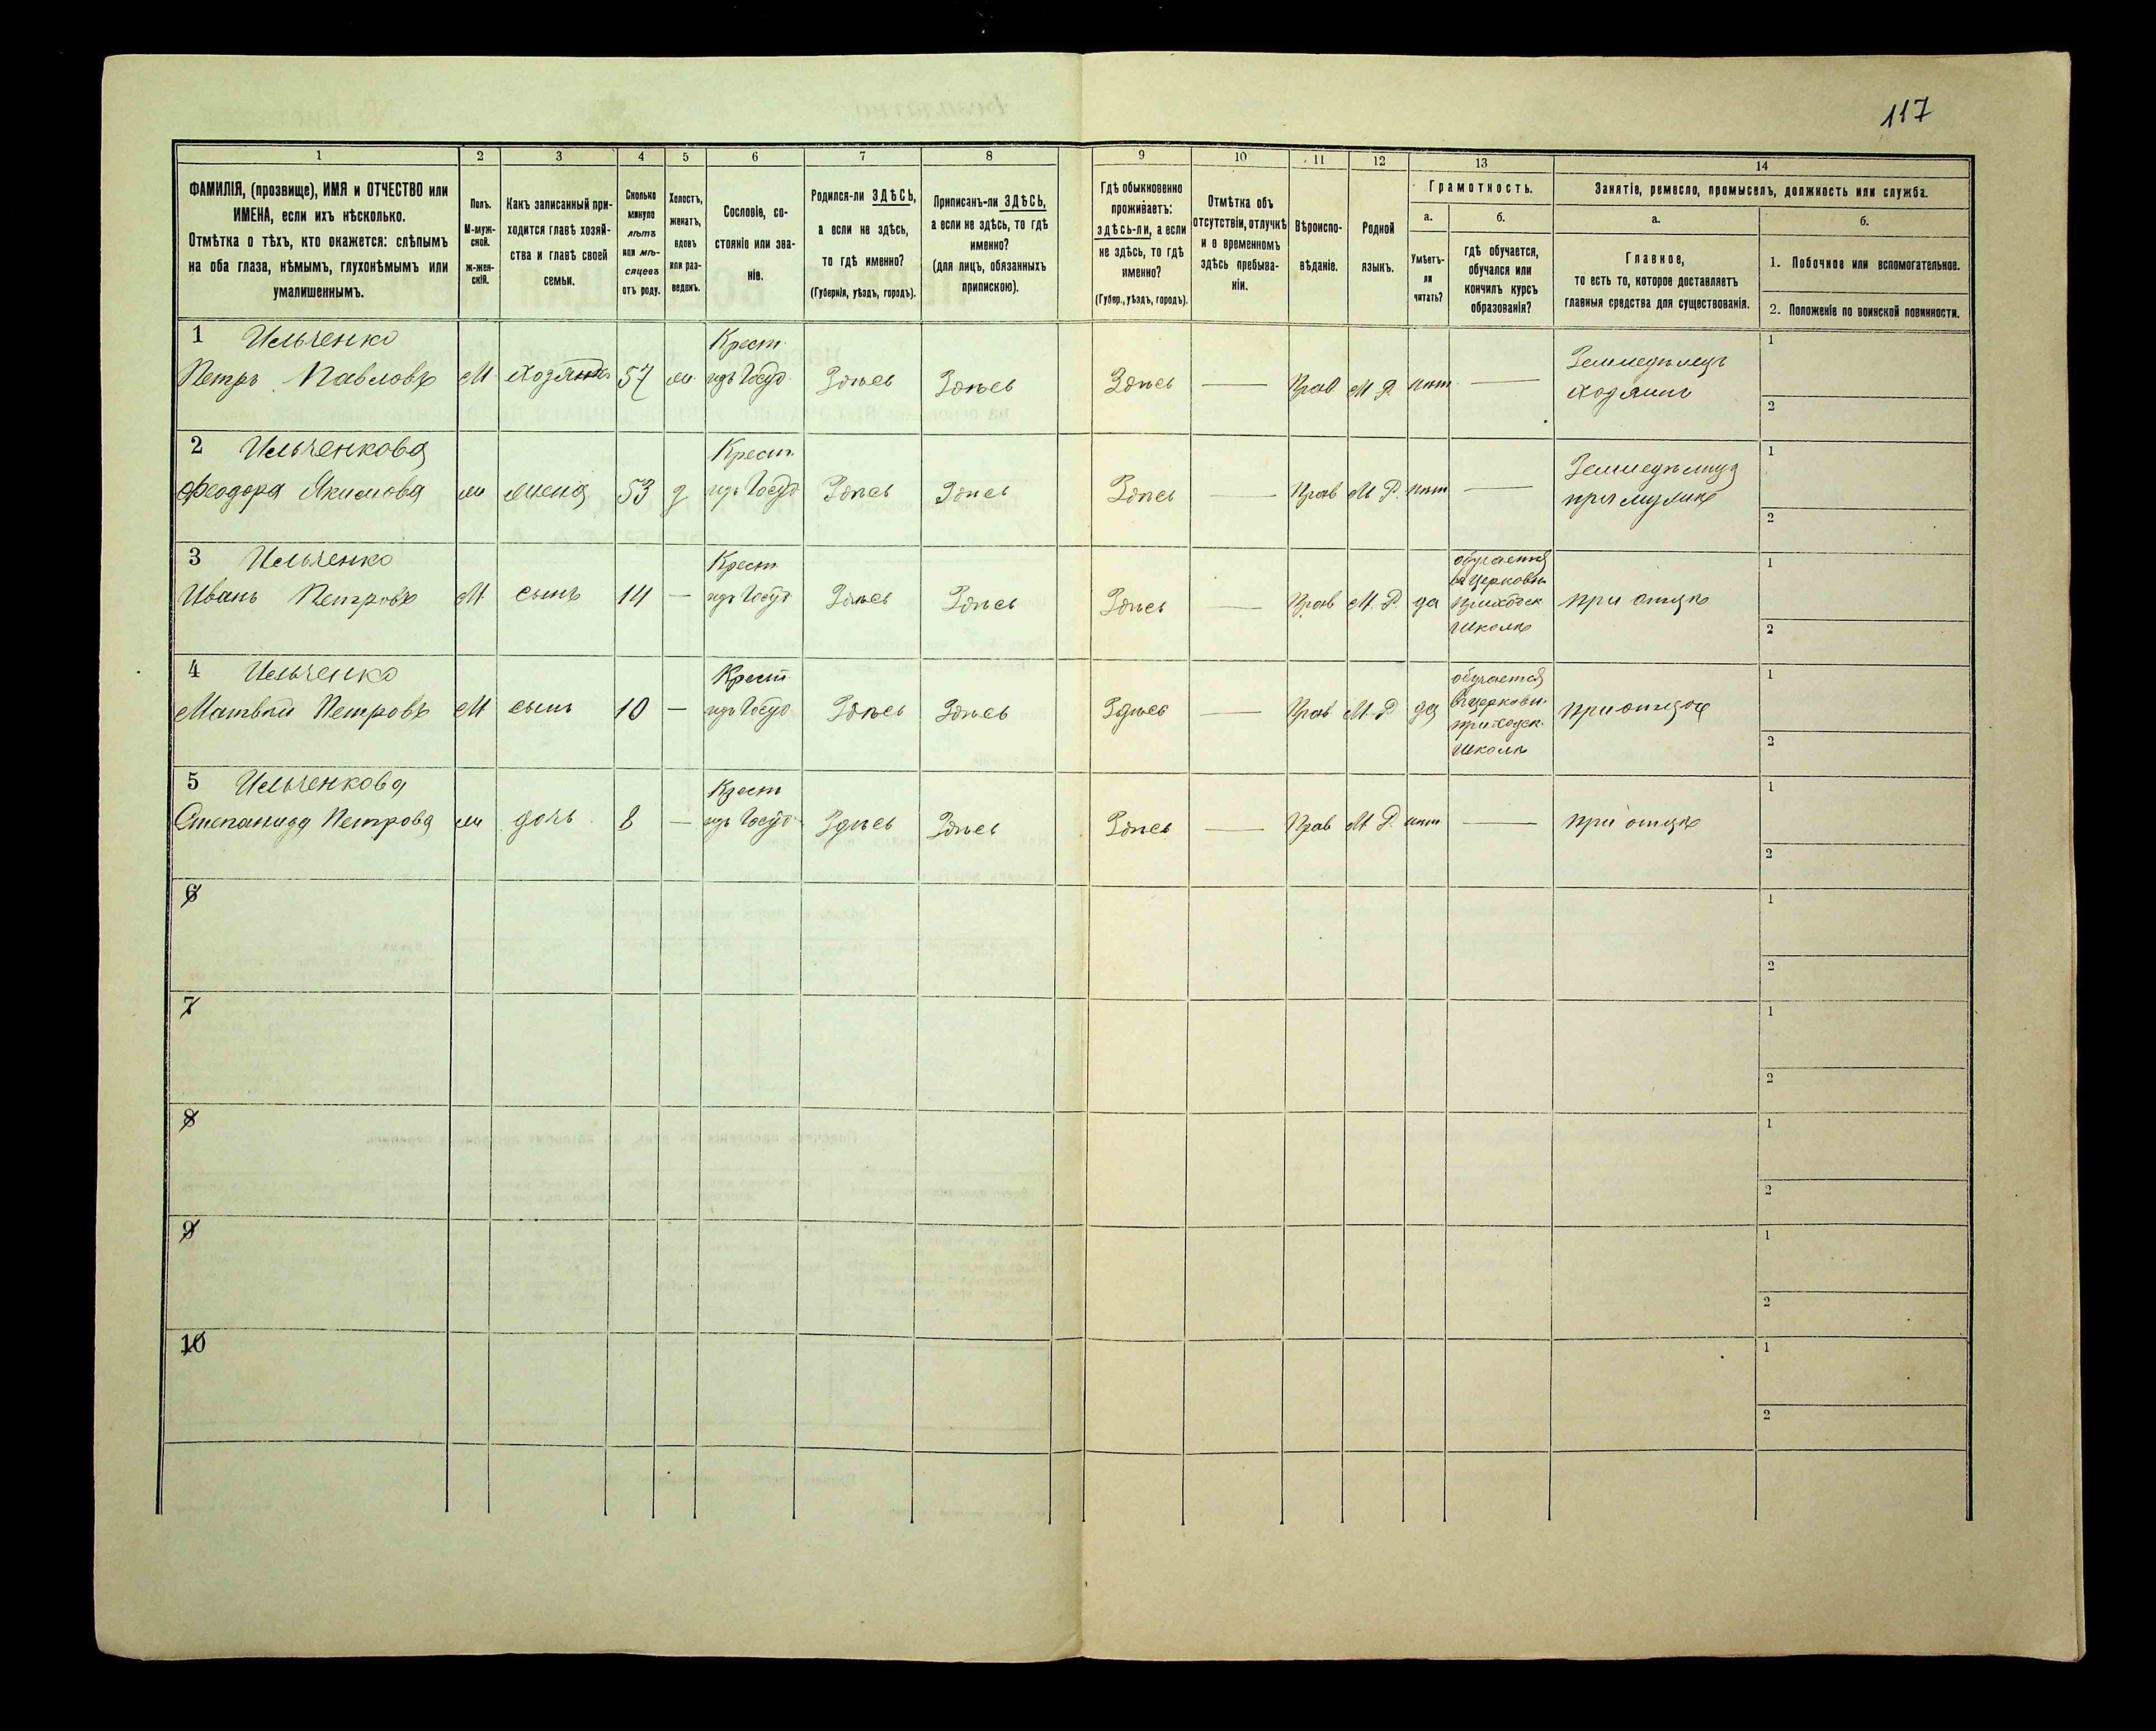 117
1 2 3 4 5 6 7 8 9 10 11 12 13 14
ФАМИЛІЯ, (прозвище), ИМЯ и ОТЧЕСТВО или
ИМЕНА, если ихъ нѣсколько.
Отмѣтка о тѣхъ, кто окажется: слѣпымъ
на оба глаза, нѣмымъ, глухонѣмымъ или
умалишеннымъ.
Полъ.
М-муж-
ской.
ж-жен-
скій.
Какъ записанный при-
ходится главѣ хозяй-
ства и главѣ своей
семьи.
Сколько
минуло
лѣтъ
или мѣ-
сяцевъ
отъ роду.
Холостъ,
женатъ,
вдовъ
или раз-
веденъ.
Сословіе, со-
стояніе или зва-
ніе.
Родился-ли ЗДѢСЬ,
а если не здѣсь,
то гдѣ именно?
(Губернія, уѣздъ, городъ).
Приписанъ-ли ЗДѢСЬ,
а если не здѣсь, то гдѣ
именно?
(для лицъ, обязанныхъ
припискою).
Гдѣ обыкновенно
проживаетъ:
здѣсь-ли, а если
не здѣсь, то гдѣ
именно?
(Губер., уѣздъ, городъ).
Отмѣтка объ
отсутствіи, отлучкѣ
и о временномъ
здѣсь пребыва-
ніи.
Вѣроиспо-
вѣданіе.
Родной
языкъ.
Грамотность.
а.
Умѣетъ-
ли
читать?
б.
гдѣ обучается,
обучался или
кончилъ курсъ
образованія?
Занятіе, ремесло, промыселъ, должность или служба.
а.
Главное,
то есть то, которое доставляетъ
главныя средства для существованія.
б.
1. Побочное или вспомогательное.
2. Положеніе по воинской повинности.
1 Ильченко
Петръ Павловъ
М
хозяинъ
57
ж
Крест.
изъ Госуд.
Здѣсь
Здѣсь
Здѣсь
—
Прав
М. Р.
нѣт
—
Земледѣлецъ
хозяинъ
1
2
2 Ильченкова
Феодора Якимова
ж
жена
53
з
Крест.
изъ Госуд
Здѣсь
Здѣсь
Здѣсь
—
Прав
М Р.
нѣт
—
Земледѣлица
при мужѣ
1
2
3 Ильченко
Иванъ Петровъ
М
сынъ
14
—
Крест
изъ Госуд
Здѣсь
Здѣсь
Здѣсь
—
Прав
М. Р.
да
обучается
въ Церковн
приходск
школѣ
при отцѣ
1
2
4 Ильченко
Матвѣй Петровъ
М
сынъ
10
—
Крест.
изъ Госуд
Здѣсь
Здѣсь
Здѣсь
—
Прав.
М. Р
да
обучается
въ церковн.
приходск.
школѣ
при отцѣ
1
2
5 Ильченкова
Степанида Петрова
ж
дочь
8
—
Крест
изъ Госуд.
Здѣсь
Здѣсь
Здѣсь
—
Прав
М Р.
нѣт
—
при отцѣ
1
2
6
1
2
7
1
2
8
1
2
9
1
2
10
1
2